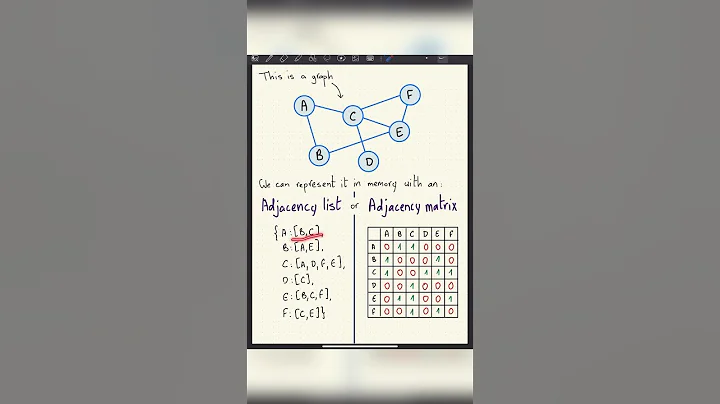 This is a graph
A
C
F
E
B
D
We can represent it in memory with an:
Adjacency list or Adjacency matrix
{A:[B,C],
B:[A,E],
C:[A,D,F,E],
D:[C],
E:[B,C,F],
F:[C,E]}
A B C D E F
A 0 1 1 0 0 0
B 1 0 0 0 1 0
C 1 0 0 1 1 1
D 0 0 1 0 0 0
E 0 1 1 0 0 1
F 0 0 1 0 1 0